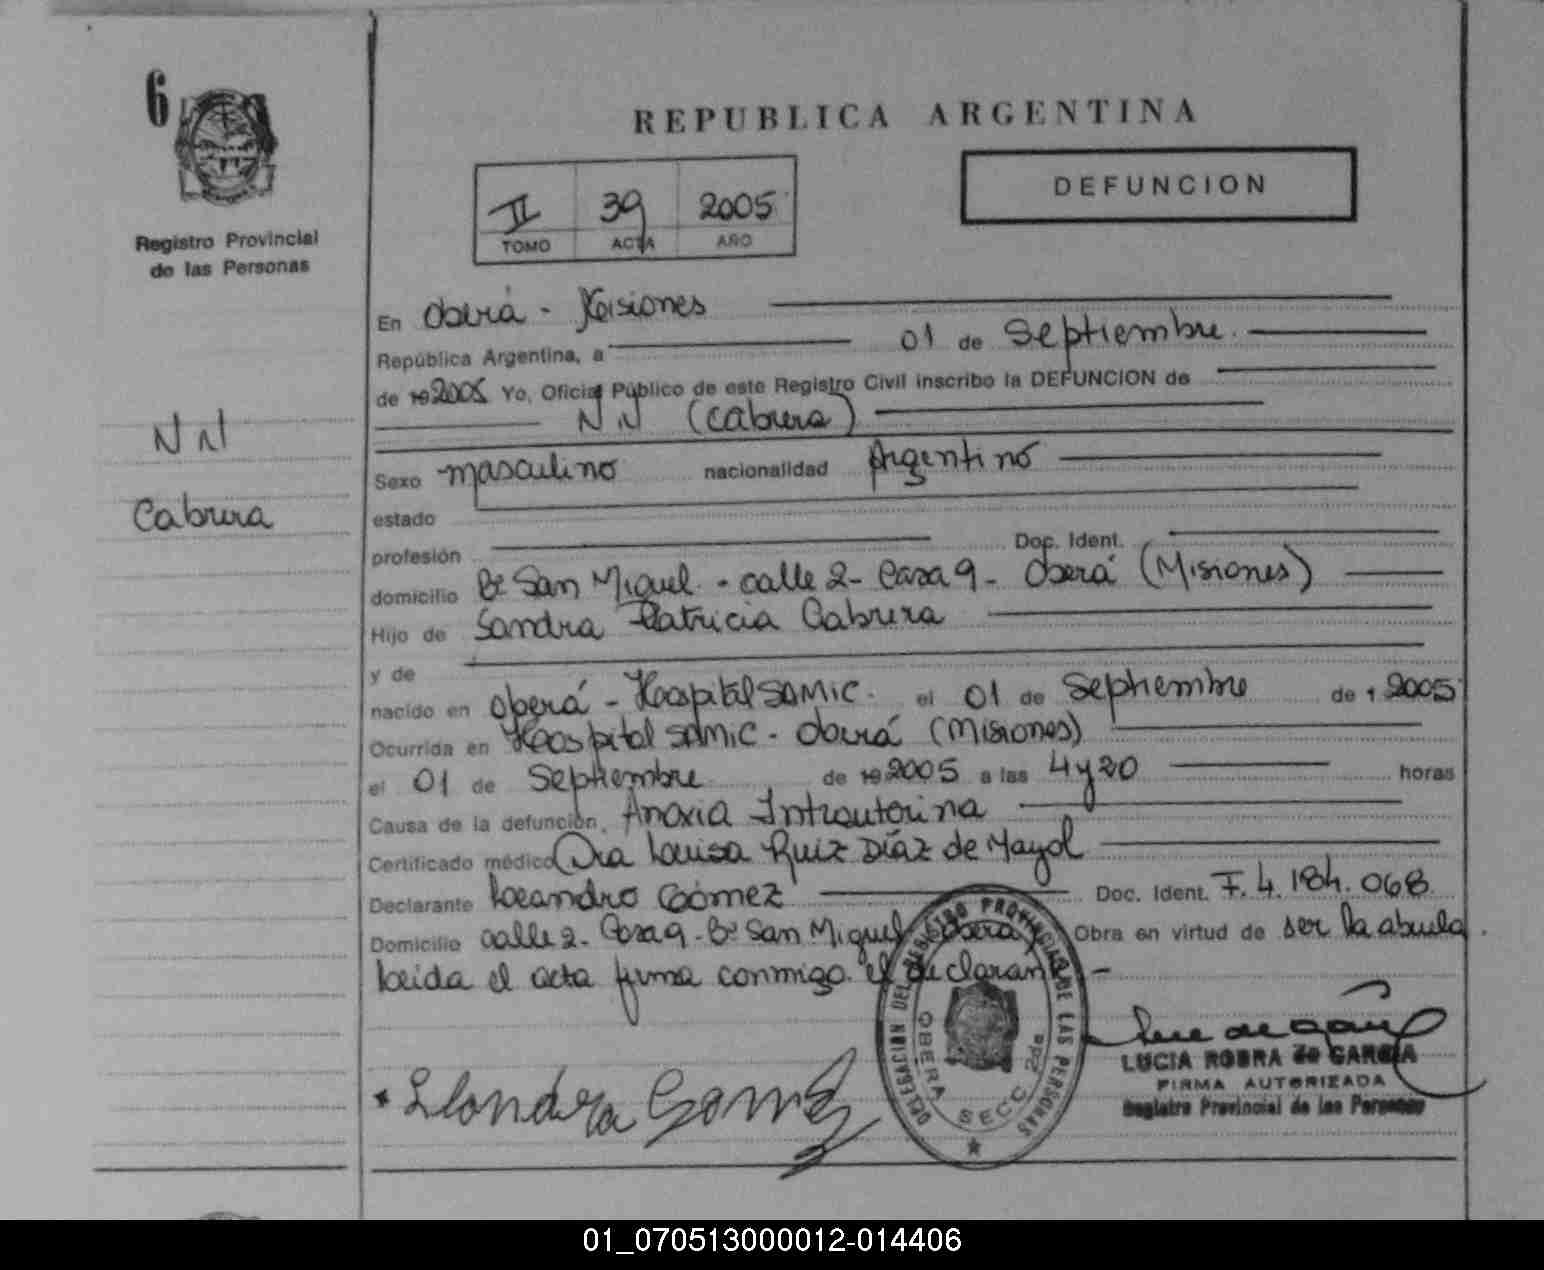 6
Registro Provincial
de las Personas
N N
Cabrera
REPUBLICA ARGENTINA
II 39 2005
TOMO ACTA AÑO
DEFUNCION
En Oberá - Misiones
República Argentina, a 01 de Septiembre.
de 19 2005 Yo, Oficial Público de este Registro Civil inscribo la DEFUNCION de
N N (Cabrera)
Sexo masculino nacionalidad Argentino
estado
profesión Doc. Ident.
domicilio Bº San Miguel. - calle 2 - Casa 9 - Oberá (Misiones)
Hijo de Sandra Patricia Cabrera
y de
nacido en Oberá - Hospital SAMIC. el 01 de Septiembre de 1 2005
Ocurrida en Hospital SAMIC - Oberá (Misiones)
el 01 de Septiembre de 19 2005 a las 4 y 20 horas
Causa de la defunción, Anoxia Intrauterina
Certificado médico Dra Luisa Ruiz Díaz de Mayol
Declarante Leandro Gómez Doc. Ident. F. 4. 184. 068.
Domicilio calle 2 - Casa 9 - Bº San Miguel Oberá Obra en virtud de ser la abuela.
Leida el acta firma conmigo el declarante -
DELEGACION DEL REGISTRO PROVINCIAL DE LAS PERSONAS
OBERA SECC. 2da
LUCIA ROBRA de GARCIA
FIRMA AUTORIZADA
Registro Provincial de las Personas
01_070513000012-014406